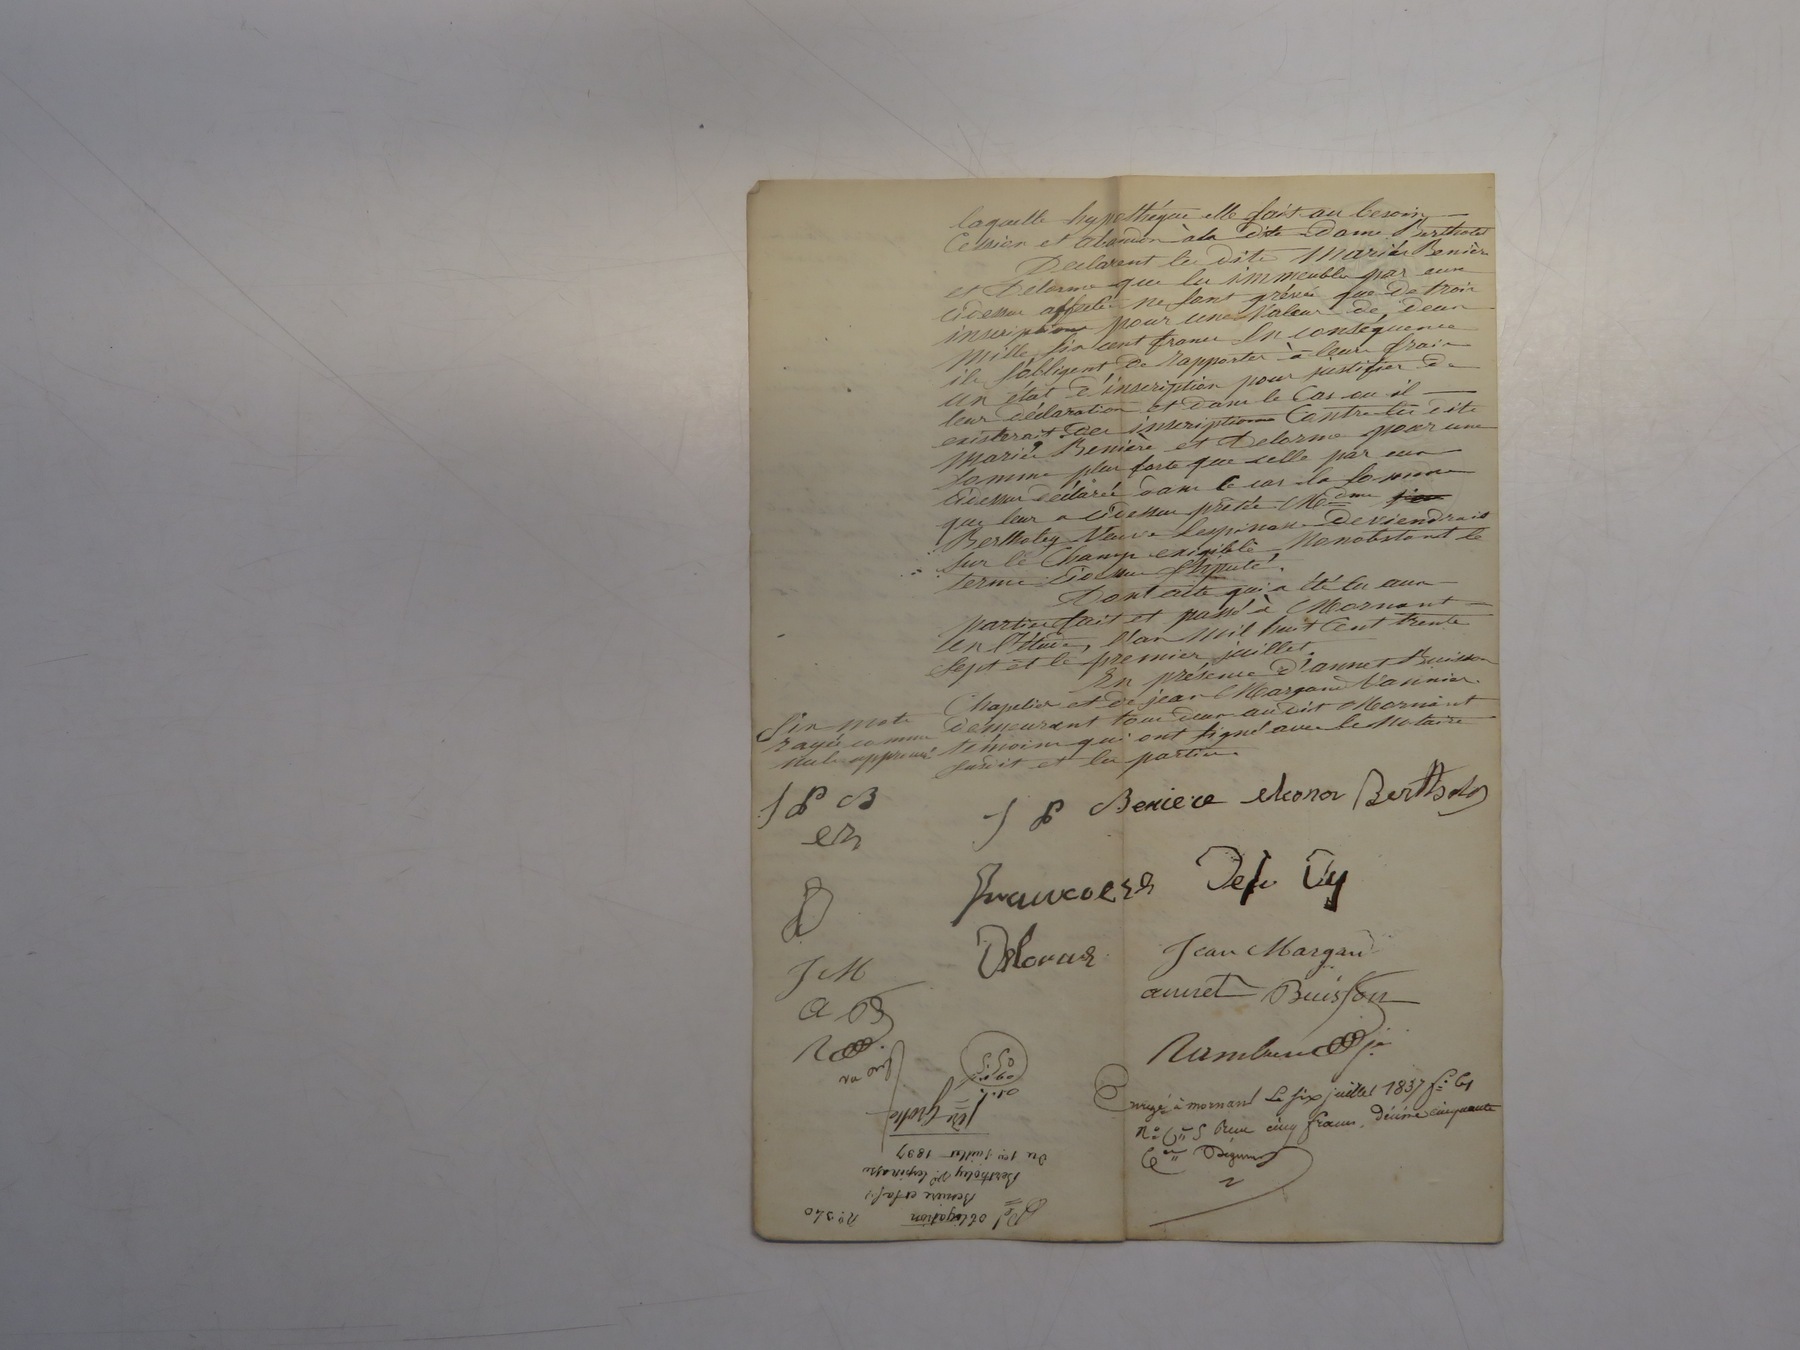 laquelle hypothéque elle fait au besoin
Cession et abandon à la dite Dame Bertholet
Declarent les dits Mariés Benière
et Delorme que les immeubles par eux
cidessus affectés ne sont grévés que de trois
inscriptions pour une valeur de deux
Mille six cent francs En conséquence
ils s'obligent de rapporter à leurs frais
un état d'inscription pour justifier de
leur déclaration et dans le Cas ou il
existerait des inscriptions Contre les dits
Mariés Benière et Delorme pour une
somme plus forte que celle par eux
cidessus déclarée dans ce cas la somme
que leur a cidessus prêtée Mdme
Bertholey Veuve Lespinasse deviendrait
sur le Champ exigible Nonobstant le
terme cidessus stipulé.
Dont acte qui a été lu aux
parties fait et passé à Mornant
en l'étude, l'an Mil huit Cent trente
sept et le premier juillet.
En présence d'annet Buisson
Chapelier et de jean Margand Vannier
demeurant tous deux audit Mornant
témoins qui ont signé avec le Notaire
susdit et les parties.
Six mots
rayés comme
nuls approuvé
J P B
J P Beniere eleonor Bertholey
Francoise
Delorme
J M
Jean Margand
a B
annet Buisson
Enregé à mornant Le six juillet 1837 fo 61
Ro Co 5 Reçu cinq francs, décime cinquante
Ces
No 340
obligation
Beniere et sa fe
Bertholey Ve lespinasse
Du 1er juillet 1837